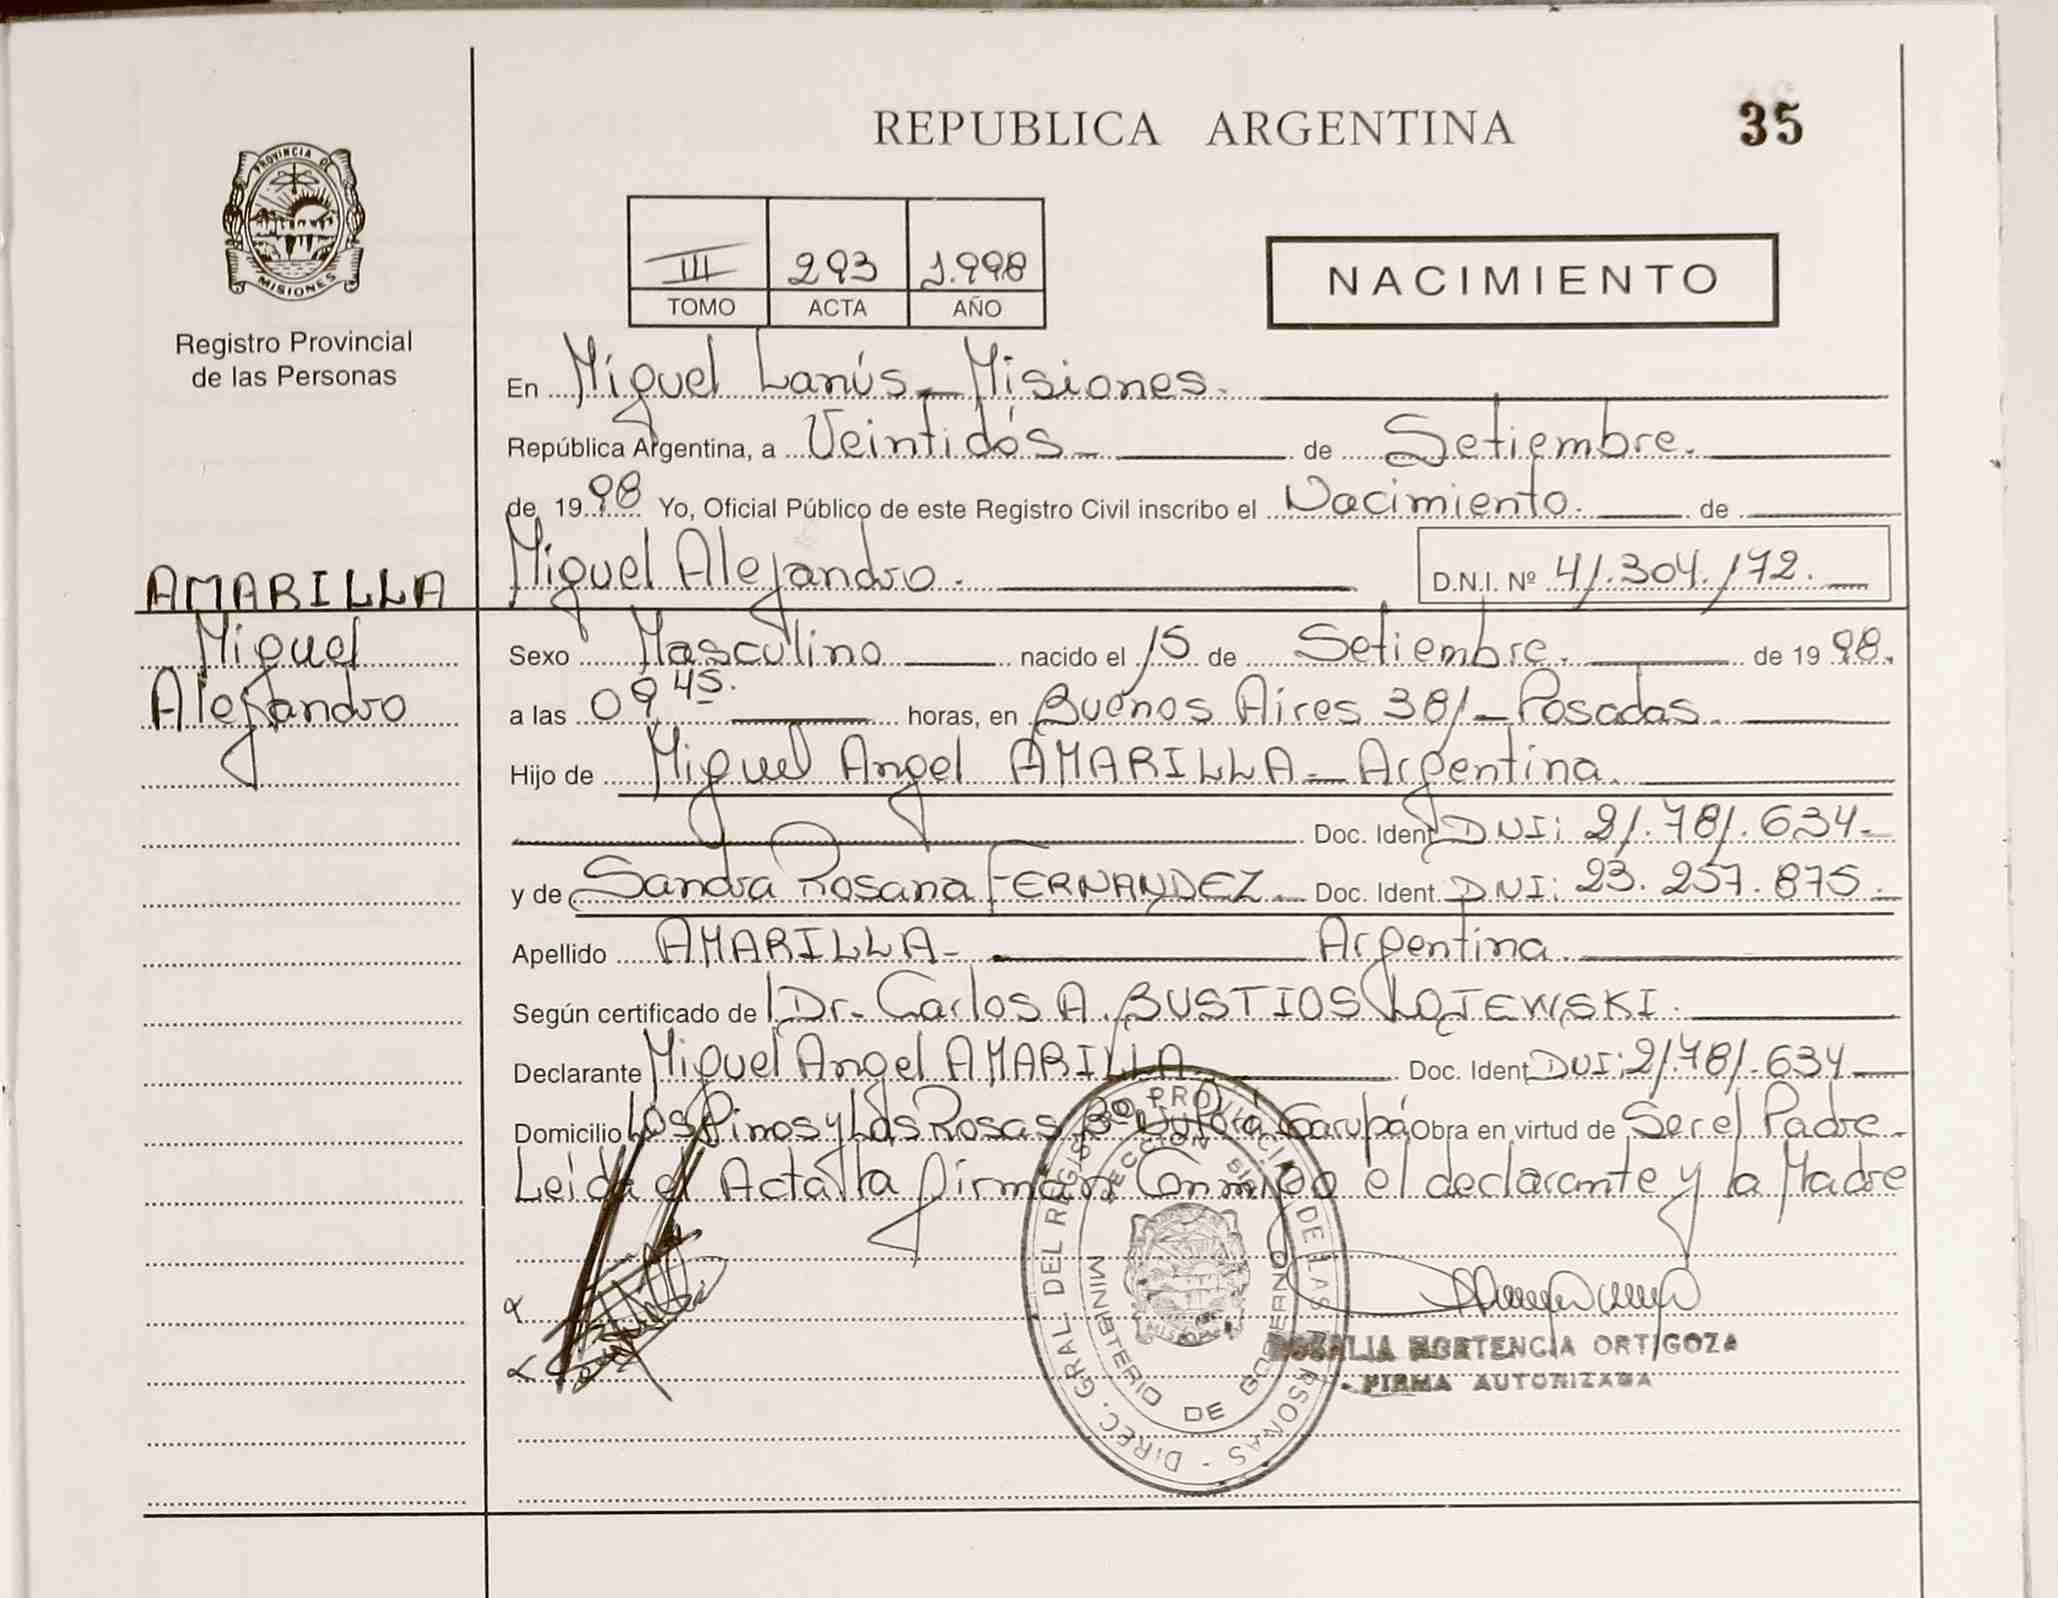 REPUBLICA ARGENTINA
35
PROVINCIA DE
MISIONES
Registro Provincial
de las Personas
III 293 1.998
TOMO ACTA AÑO
NACIMIENTO
En Miguel Lanús - Misiones.
República Argentina, a Veintidós - de Setiembre.
de 1998 Yo, Oficial Público de este Registro Civil inscribo el Nacimiento. de
AMARILLA
Miguel
Alejandro
Miguel Alejandro. D.N.I. Nº 41.304.172.
Sexo Masculino nacido el 15 de Setiembre. de 1998.
a las 09 45. horas, en Buenos Aires 381 - Posadas.
Hijo de Miguel Angel AMARILLA - Argentina.
Doc. Ident DNI: 21.781.634-
y de Sandra Rosana FERNANDEZ. Doc. Ident. DNI: 23.257.875.
Apellido AMARILLA - Argentina.
Según certificado de Dr. Carlos A. BUSTIOS LOJEWSKI.
Declarante Miguel Angel AMARILLA Doc. Ident DNI: 21.781.634
Domicilio Los Pinos y Las Rosas Bº Garupá Obra en virtud de Ser el Padre.
Leída el Acta la firman Conmigo el declarante y la Madre
DIREC. GRAL DEL REGISTRO PROVINCIAL DE LAS PERSONAS
MINISTERIO DE GOBIERNO
MISIONES
HORTENCIA ORTIGOZA
FIRMA AUTORIZADA